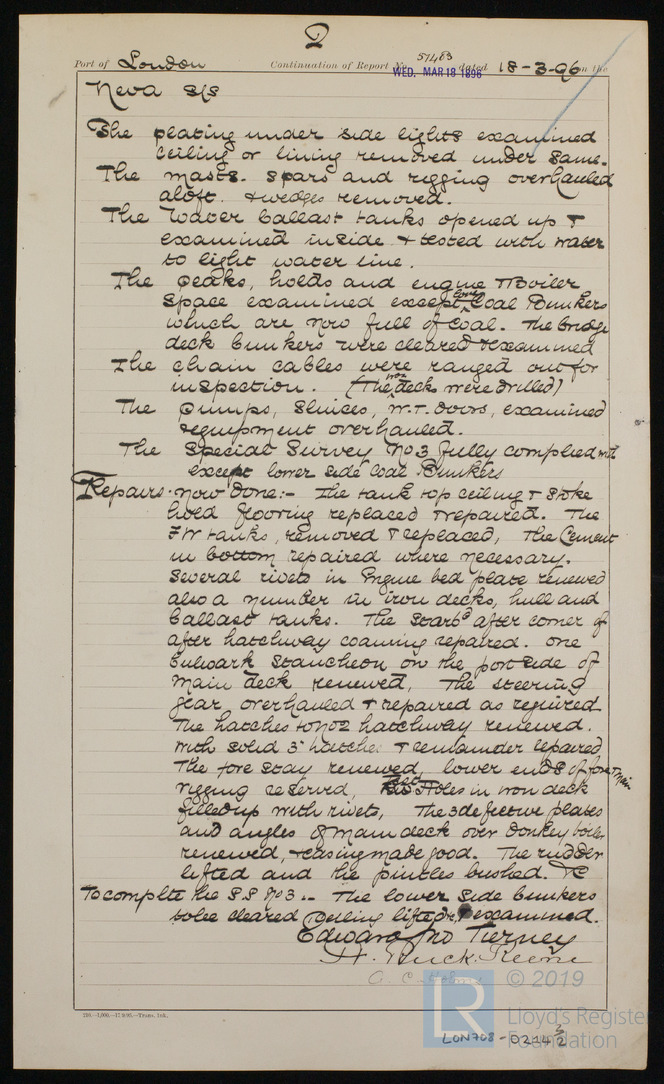 2
Port of London Continuation of Report No. 57463 dated 18-3-96 on the
WED. MAR 18 1896
Neva S/S
The plating under side lights examined
ceiling or lining removed under same.
The masts. spars and rigging overhauled
aloft. & wedges removed.
The Water ballast tanks opened up &
examined inside & tested with water
to light water line.
The peaks, holds and engine & Boiler
space examined except lower Coal Bunkers
which are now full of Coal. The bridge
deck bunkers were cleared & examined
The chain cables were ranged out for
inspection. (The iron deck were drilled)
The pumps, sluices, W.T. doors, examined
& equipment overhauled.
The Special Survey No 3 fully complied with
except lower side Coal Bunkers
Repairs now done:- The tank top ceiling & stoke
hold flooring replaced & repaired. The
F W tanks, removed & replaced, The Cement
in bottom repaired where necessary.
Several rivets in Engine bed plate renewed
also a number in iron decks, hull and
ballast tanks. The Starbd after corner of
after hatchway coaming repaired. One
bulwark stanchion on the port side of
main deck renewed, The steering
gear overhauled & repaired as required
The hatches to No 2 hatchway renewed.
with solid 3" hatches & remainder repaired
The fore stay renewed, lower ends of fore & main
rigging reserved, Holes in iron deck
filled up with rivets, The 3 defective plates
and angles of main deck over donkey boiler
renewed, & casing made good. The rudder
lifted and the pintles bushed. &c
To complete the S.S No 3.- The lower side bunkers
to be cleared ceiling lifted & examined.
Edward Jno Tierney
H. Ruck. Keene
A. C. Holms
© 2019
LR
Lloyd's Register
Foundation
LON708-0214 3/2